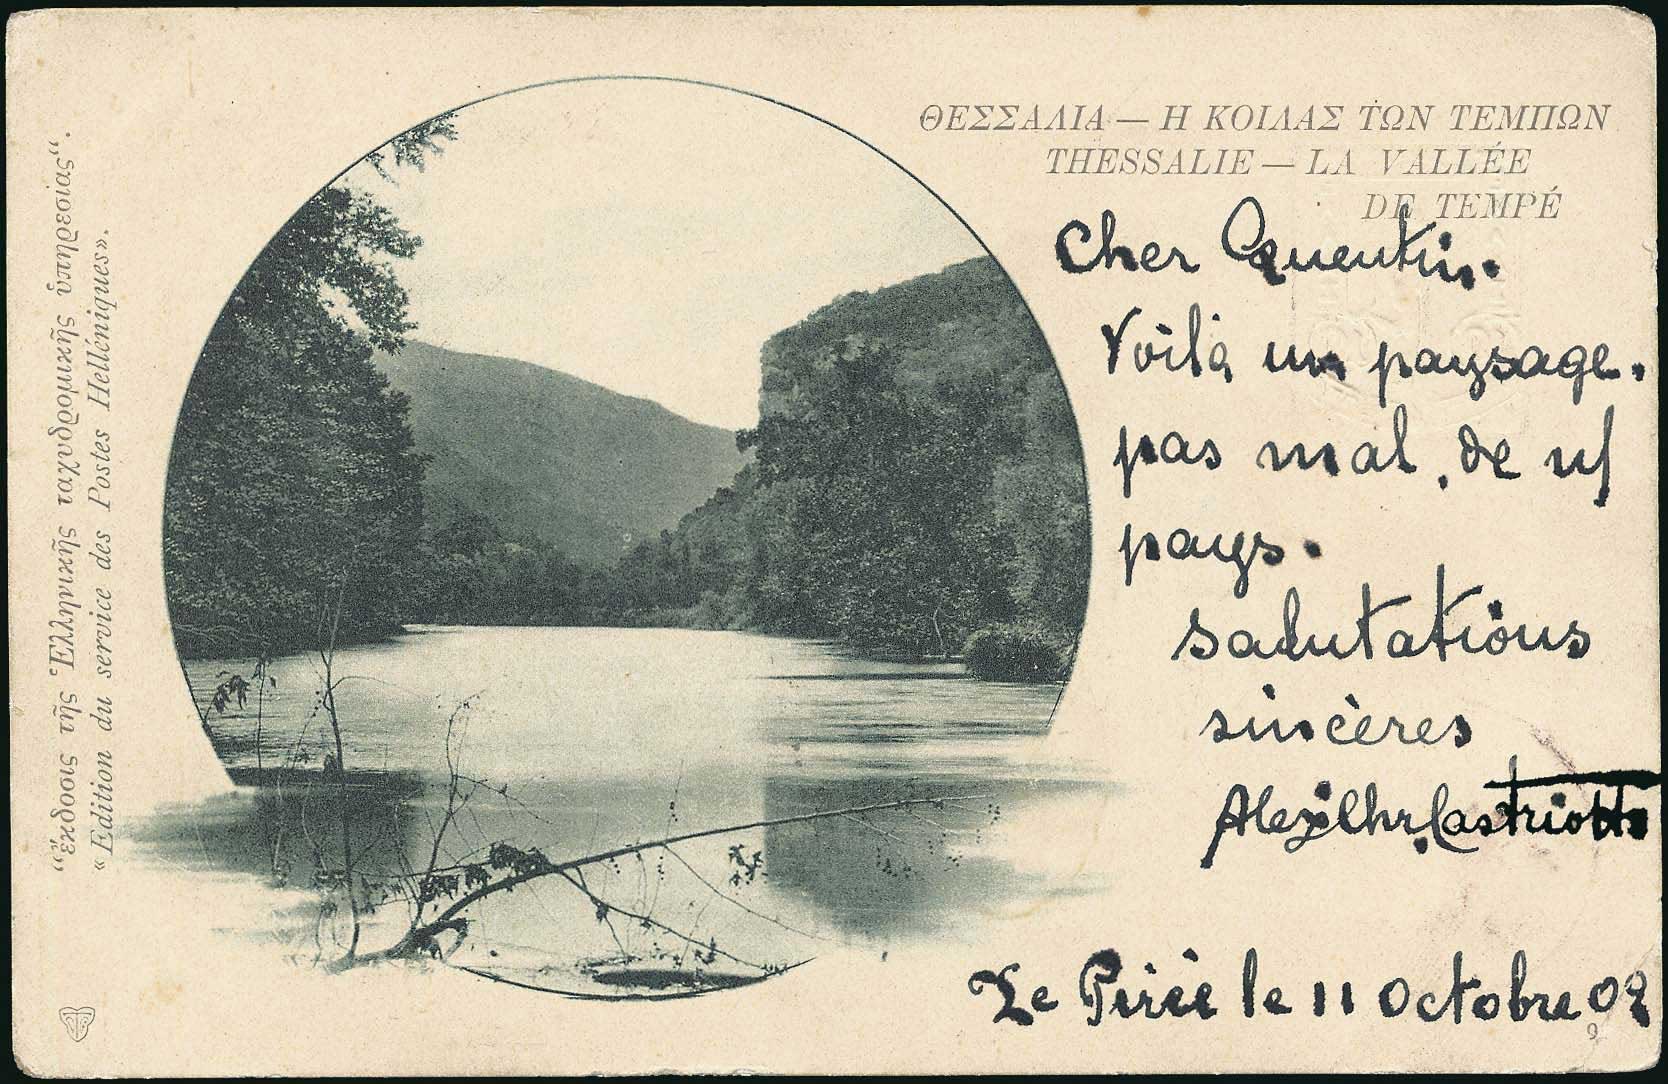 ΘΕΣΣΑΛΙΑ — Η ΚΟΙΛΑΣ ΤΩΝ ΤΕΜΠΩΝ
THESSALIE — LA VALLÉE
DE TEMPÉ
Cher Quentin.
Voilà un paysage.
pas mal, de
pays.
salutations
sincères
Castriotis
Le Pirée le 11 Octobre 02
„ἔκδοσις τῆς Ἑλληνικῆς ταχυδρομικῆς ὑπηρεσίας”.
«Edition du service des Postes Helléniques».